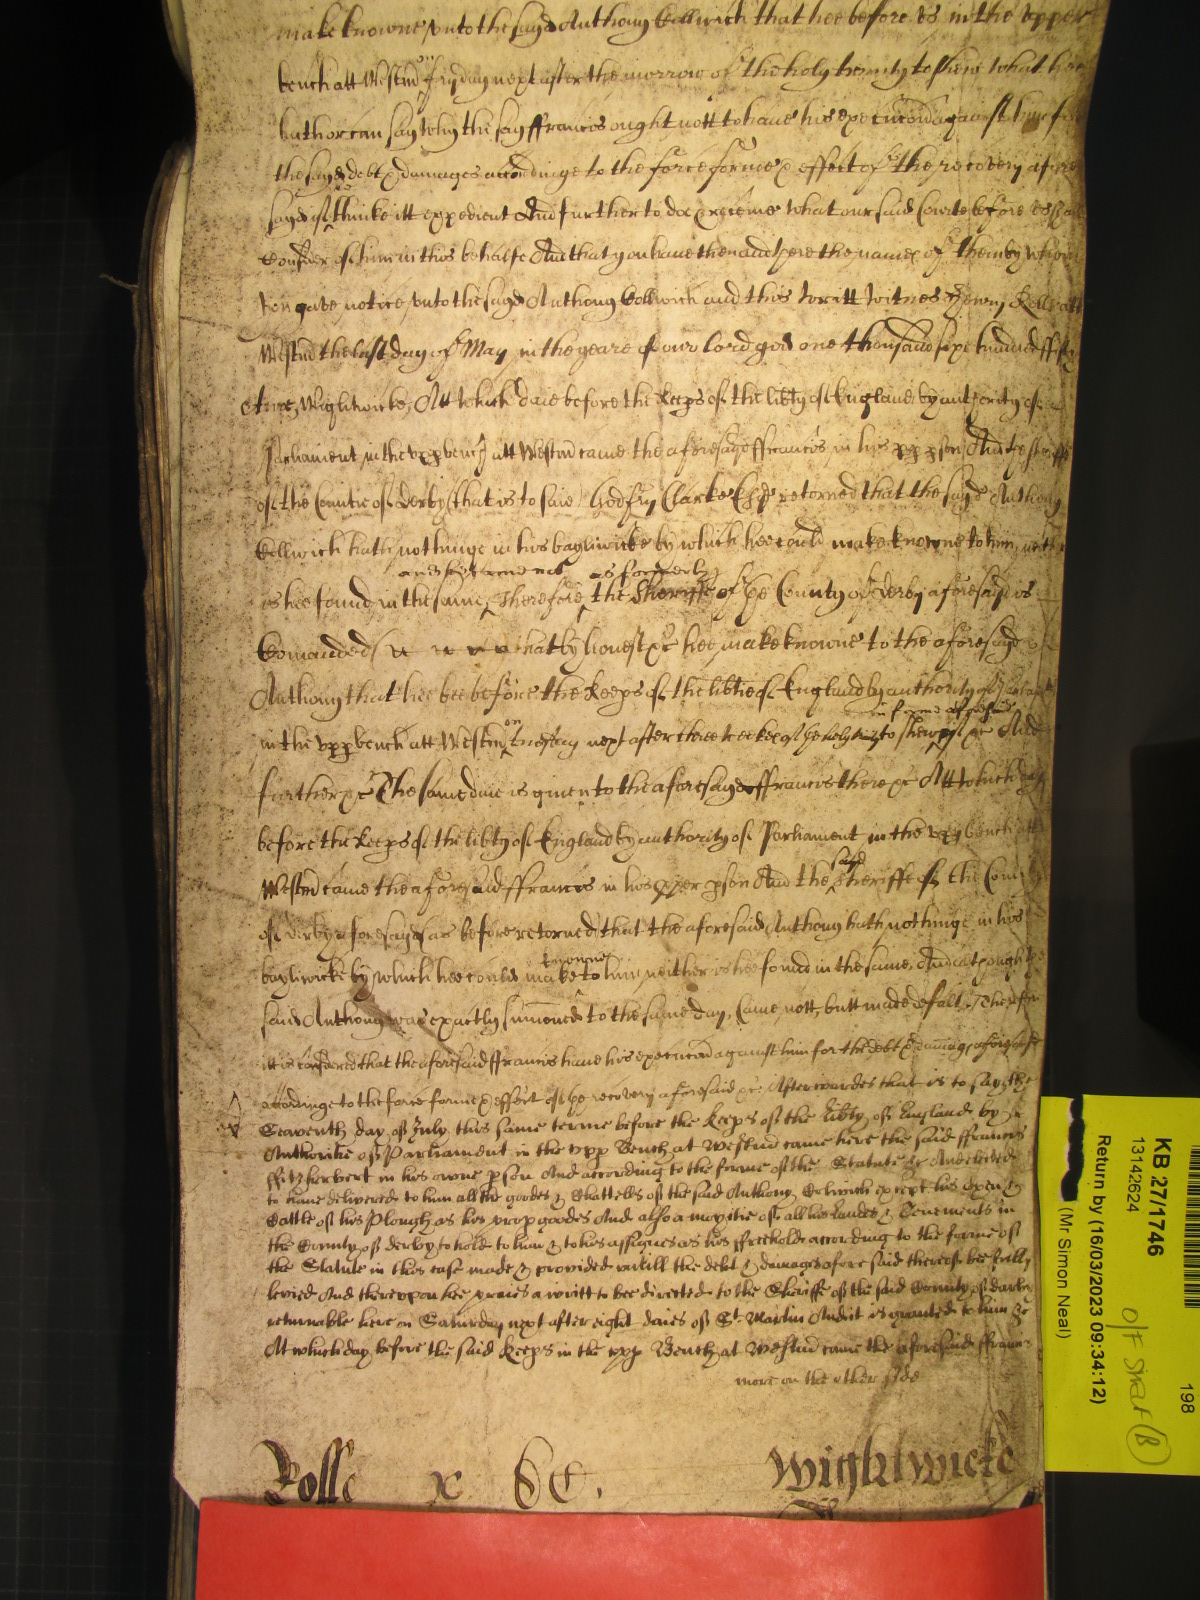 make knowne unto the sayd Anthony Collwich that hee before us in the upper
bench att Westm on fryday next after the morrow of the holy trinity to shew what hee
hath or can say why the sayd ffrancis ought nott to have his execucion against him for
the sayd debt & damages accordinge to the force forme & effect of the recovery afore
sayd if hee thinke itt expedient And further to doe & receive what our said Courte before us shall
Consider of him in this behalfe And that you have then and there the names of them by whome
you gave notice unto the sayd Anthony Collwich and this writt witnes Henry Rolle att
Westm the last day of May in the yeare of our lord god one thousand six hundred fifty
Wightwicke, Att which daie before the Keeps of the libty of England by authority of
Parliament in the upp bench att Westm came the aforesayd ffrancis in his pson And the sheriffe
of the Countie of Derby (that is to said) Godfry Clarke Esqr retorned that the sayd Anthony
Collwich hath nothinge in his bayliwicke by which hee could make knowne to him, neither
and hee came not as formerly
is hee found in the same, Therefore the Sheriffe of the County of Derby aforesayd is
Comanded that by honest &c hee make knowne to the aforesayd
Anthony that hee bee before the Keeps of the libtie of England by authority of Parliamt
in forme aforesaid
in the upp bench att Westm on Tuesday next after three weekes of the holy to shew if &c And
further &c The same daie is given to the aforesayd ffrancis there &c Att which day
before the Keeps of the libty of England by authority of Parliament in the upp bench att
Westm came the aforesaid ffrancis in his pson And the sayd sheriffe of the County
of Derby aforesayd as before retorned that the aforesaid Anthony hath nothinge in his
bayliwicke by which hee could make knowne to him, neither is hee found in the same, And
said Anthony was exactly sumoned to the same day, Came nott, butt made defalt, Therefore
itt is considered that the aforesaid ffrancis have his execucion against him for the debt & damag aforesaid
accordinge to the force forme & effect of the recovery aforesaid &c Afterwardes that is to say the
Seaventh day of July this same terme before the Keeps of the libty of England by
Authoritie of Parliament in the upp Bench at Westm came here the said ffrancis
ffitzherbert in his owne pson And according to the forme of the Statute &c
to have delivered to him all the goodes & Chattells of the said Anthony Colwich except his Oxen &
Cattle of his Plough as his prop goodes And also a moyitie of all his Landes & Tenements in
the County of derby to hold to him & to his assignes as his ffreehold according to the forme of
the Statute in this case made & provided untill the debt & damages aforesaid thereof bee fully
levied And thereupon hee praies a writt to bee directed to the Sheriffe of the said County of darby
returnable here on Saturday next after eight daies of St. Martin And it is graunted to him &c
At which day before the said Keeps in the upp Bench at Westm came the aforesaid ffrancis
more on the other side
Rolle x Wightwicke
KB 27/1746
13142624
Return by (16/03/2023 09:34:12)
(Mr Simon Neal)
198
O/F
B